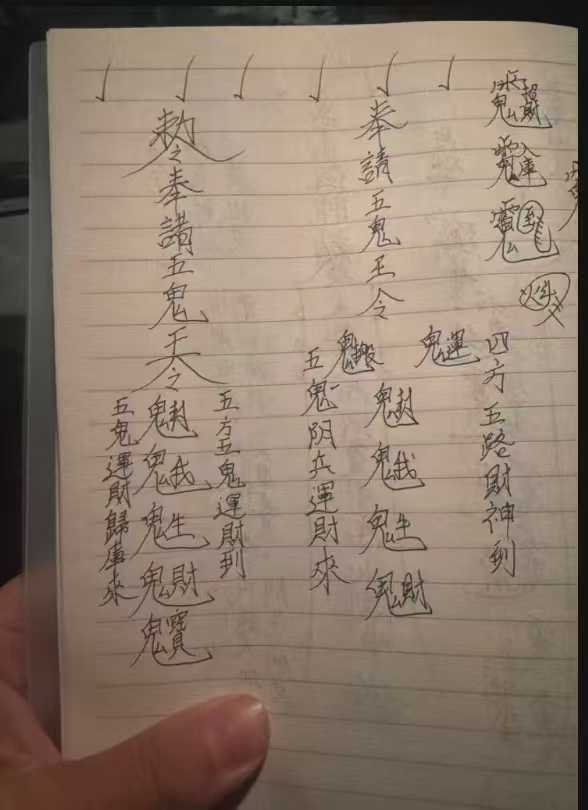 四方五路財神到
鬼運
奉請五鬼王令
鬼封
鬼我
鬼生
鬼財
鬼搬
五鬼阴兵運財來
五方五鬼運財到
敕令奉請五鬼王令
鬼封
鬼我
鬼生
鬼財
鬼寶
五鬼運財歸庫來